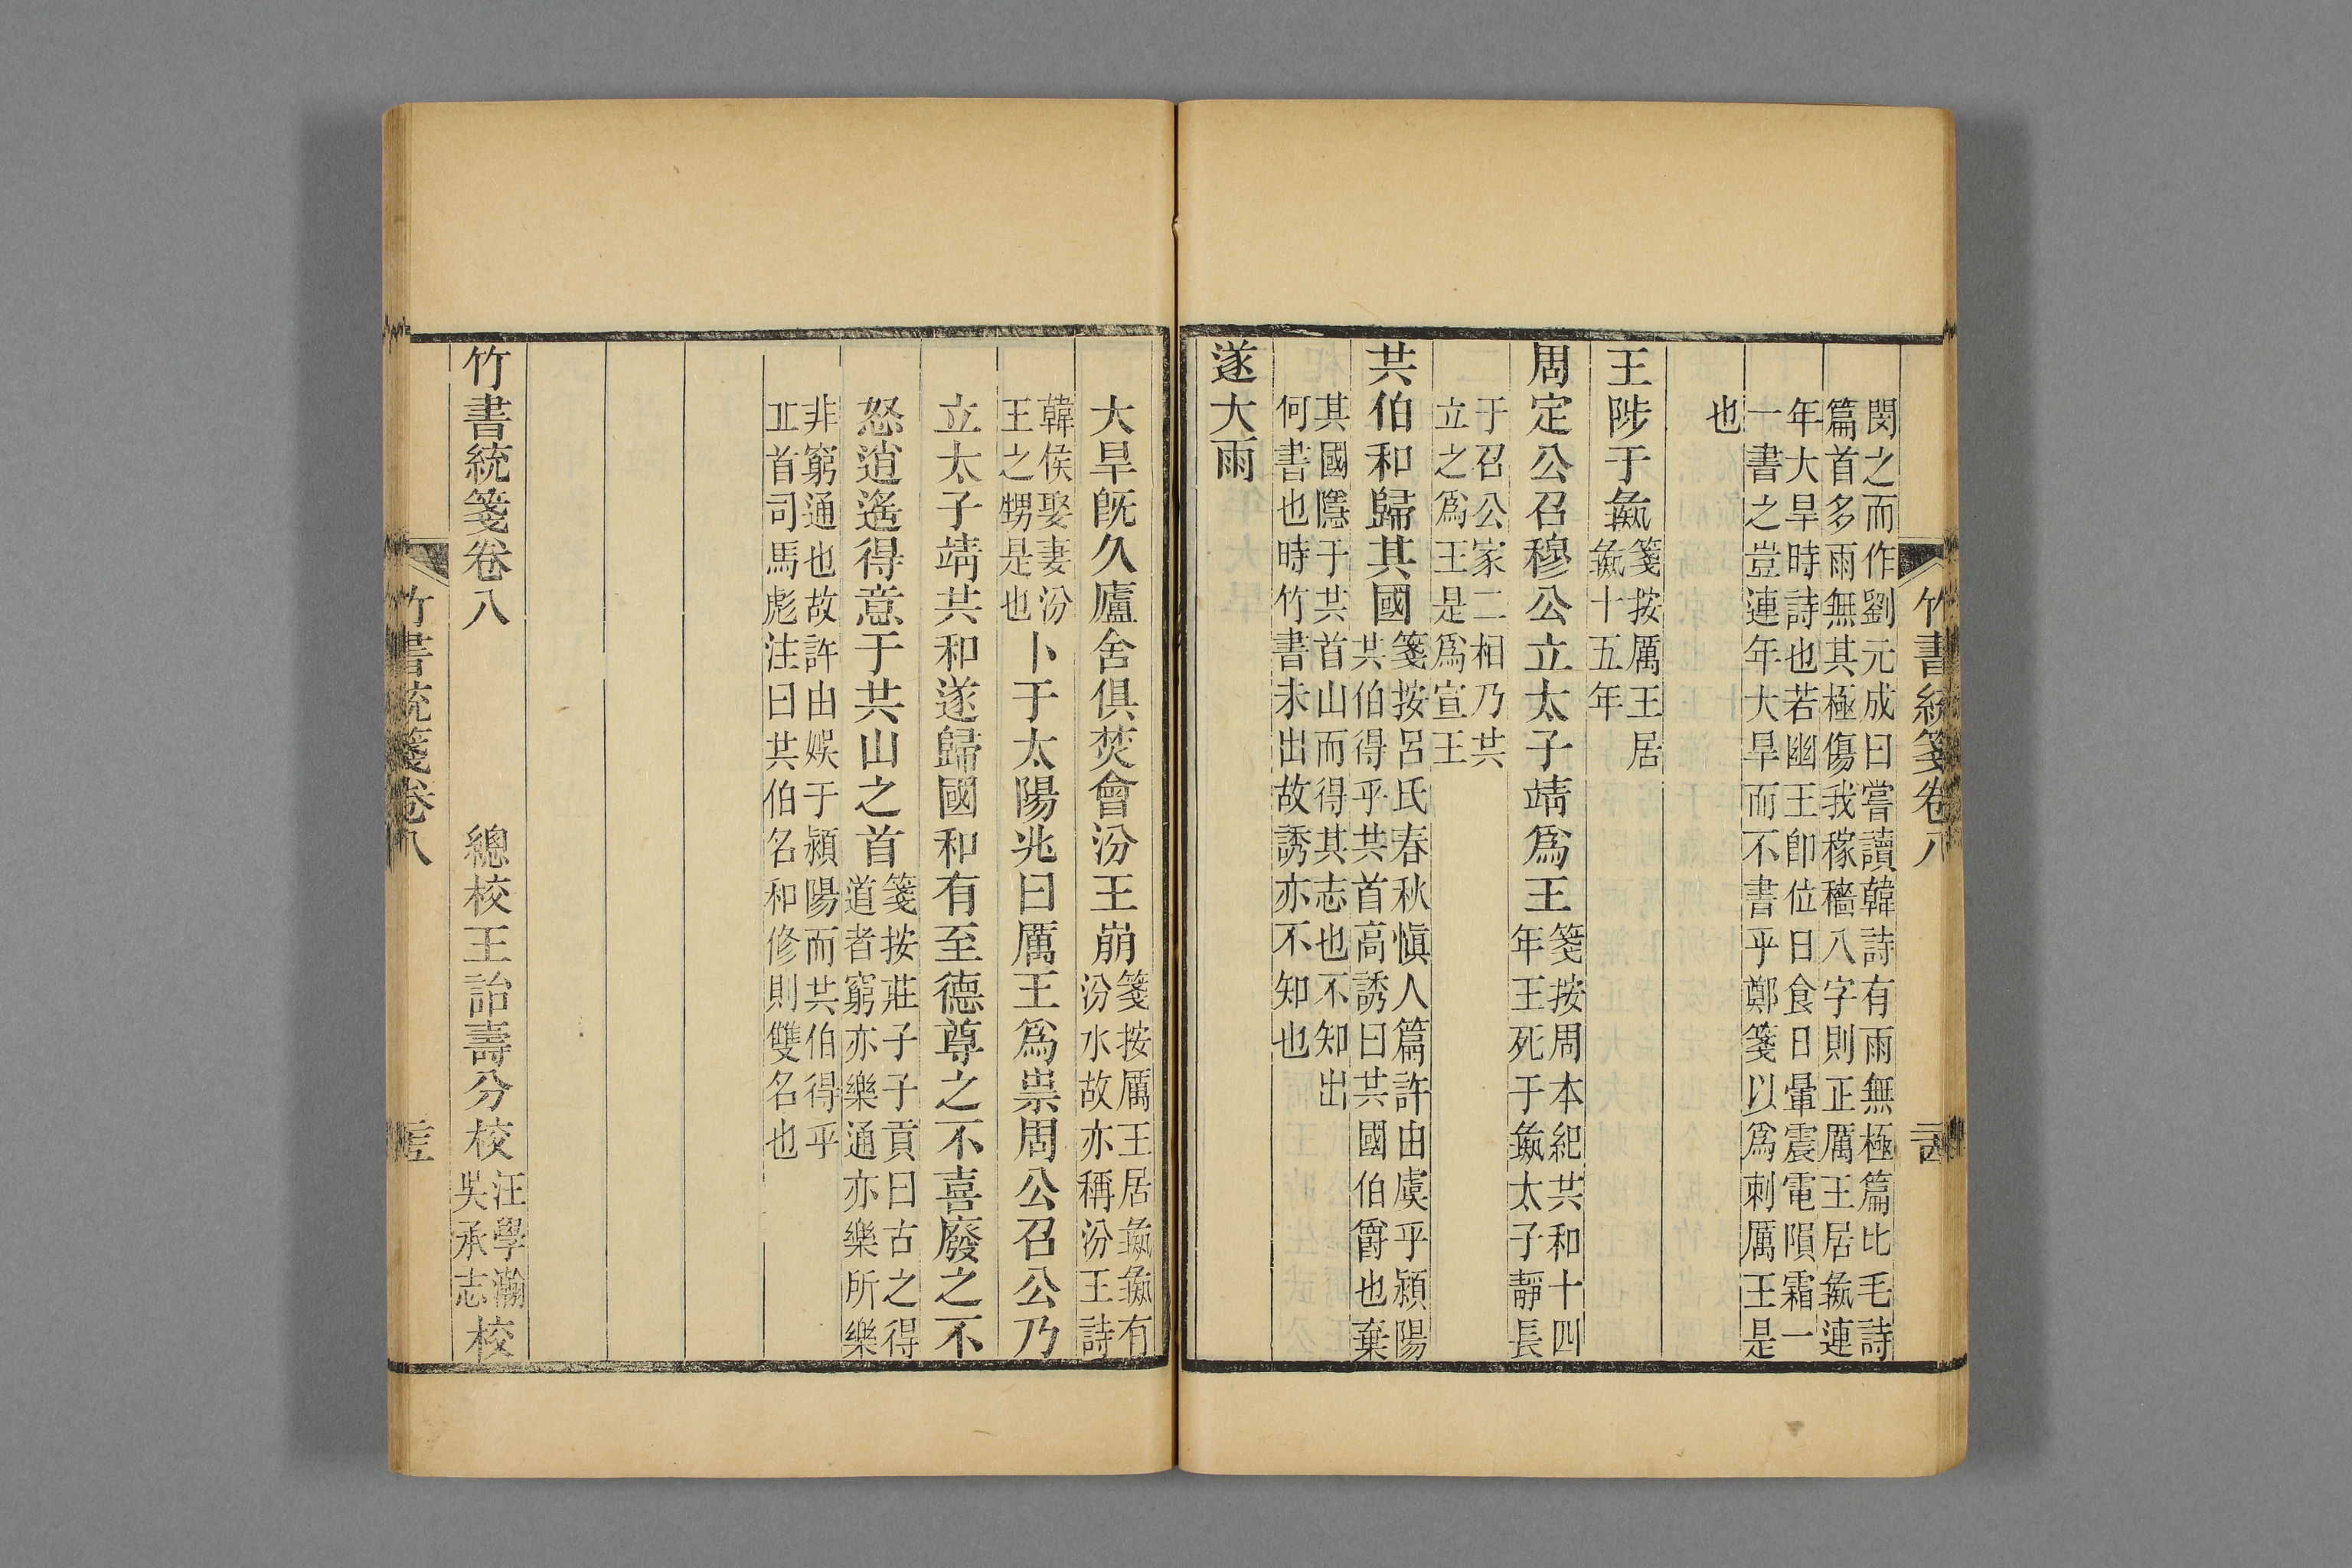 竹書統箋卷八
閔之而作劉元成曰嘗讀韓詩有雨無極篇比毛詩
篇首多雨無其極傷我稼穡八字則正厲王居彘連
年大旱時詩也若幽王卽位日食日暈震電隕霜一
一書之豈連年大旱而不書乎鄭箋以爲刺厲王是
也
王陟于彘
箋按厲王居
彘十五年
周定公召穆公立太子靖爲王
箋按周本紀共和十四
年王死于彘太子靜長
于召公家二相乃共
立之爲王是爲宣王
共伯和歸其國
箋按呂氏春秋愼人篇許由虞乎潁陽
共伯得乎共首高誘曰共國伯爵也棄
其國隱于共首山而得其志也不知出
何書也時竹書未出故誘亦不知也
遂大雨
大旱旣久廬舍俱焚會汾王崩
箋按厲王居彘彘有
汾水故亦稱汾王詩
韓侯娶妻汾
王之甥是也
卜于太陽兆曰厲王爲祟周公召公乃
立太子靖共和遂歸國和有至德尊之不喜廢之不
怒逍遙得意于共山之首
箋按莊子子貢曰古之得
道者窮亦樂通亦樂所樂
非窮通也故許由娛于潁陽而共伯得乎
丠首司馬彪注曰共伯名和修則雙名也
竹書統箋卷八
總校王詒壽分校
汪學瀚
吳承志
校
竹書統箋卷八